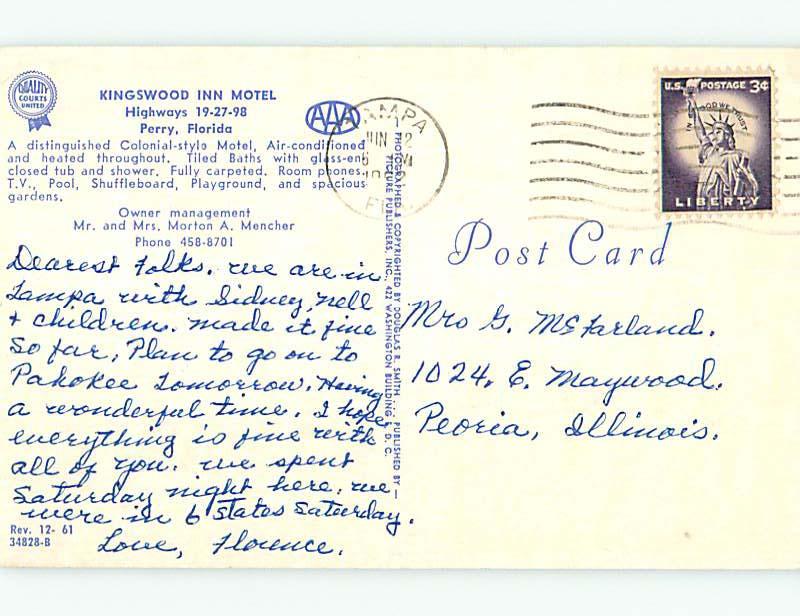 QUALITY
COURTS
UNITED
KINGSWOOD INN MOTEL
Highways 19-27-98
Perry, Florida
AAA
A distinguished Colonial-style Motel, Air-conditioned
and heated throughout. Tiled Baths with glass-en-
closed tub and shower. Fully carpeted. Room phones.
T.V., Pool, Shuffleboard, Playground, and spacious
gardens.
Owner management
Mr. and Mrs. Morton A. Mencher
Phone 458-8701
Dearest Folks. we are in
Tampa with Sidney, nell
+ children. made it fine
so far, Plan to go on to
Pahokee Tomorrow. Having
a wonderful time. I hope
everything is fine with
all of you. we spent
Saturday night here, we
were in 6 states Saturday.
Love, Florence.
Rev. 12- 61
34828-B
PHOTOGRAPHED & COPYRIGHTED BY DOUGLAS R. SMITH ... PUBLISHED BY —
PICTURE PUBLISHERS, INC., 422 WASHINGTON BUILDING, D. C.
TAMPA
JUN 12
FLA
U.S. POSTAGE 3¢
IN GOD WE TRUST
LIBERTY
Post Card
Mrs G. McFarland.
1024. E. Maywood.
Peoria, Illinois.